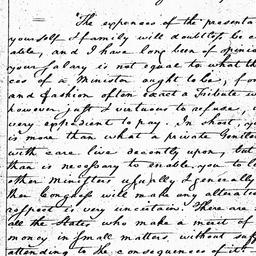 "The expences of the presenta
yourself & family will doubtless be c
able, and I have long been of opinio
your salary is not equal to what th
ces of a Minister ought to be, for
and fashion often exact a Tribute w
however just & virtuous to refuse, i
very expedient to pay. In short, yo
is more than what a private Gentlem
with care live decently upon, but
than is necessary to enable you to li
other Ministers usually & generally
ther Congress will make any alterati
respect is very uncertain. There are
all the States who make a merit of
money in small matters, without suff
attending to the consequences of it